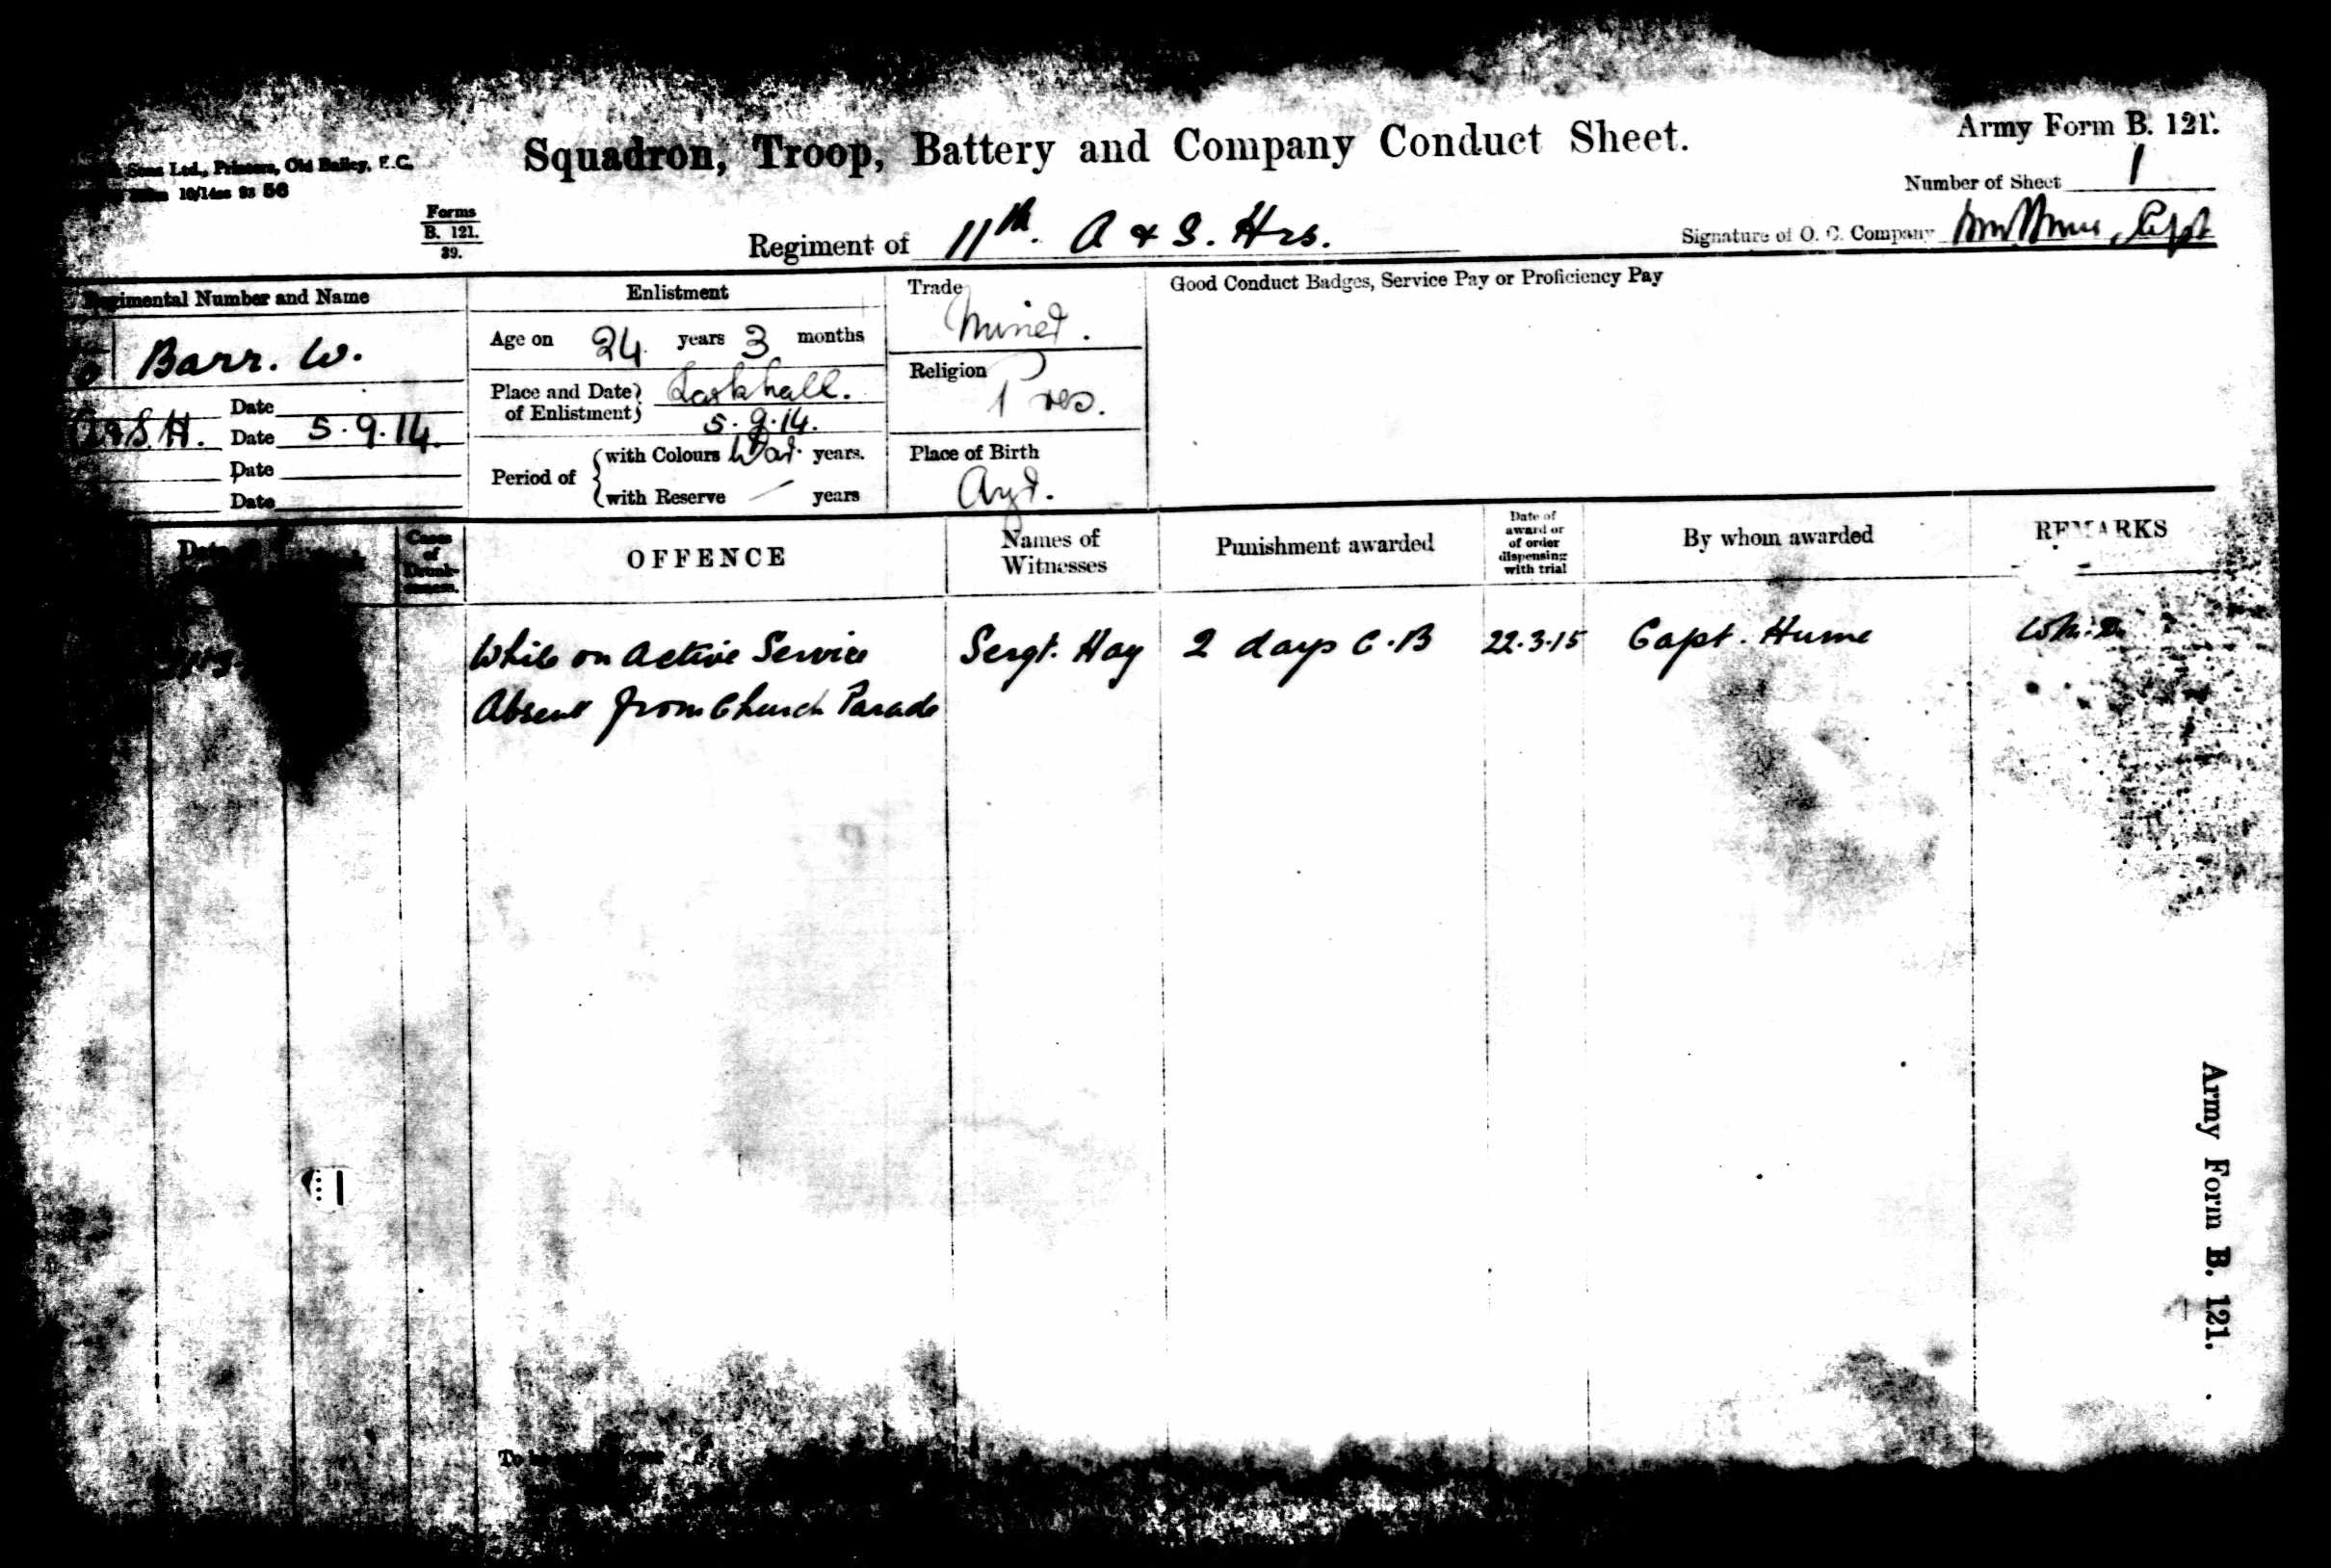 Squadron, Troop, Battery and Company Conduct Sheet.
Army Form B. 121.
Sons Ltd., Printers, Old Bailey, E.C.
10/14 93 56
Forms
B. 121.
39.
Number of Sheet 1
Regiment of 11th. A & S. Hrs.
Signature of O. C. Company Capt
Regimental Number and Name
Barr. W.
Date
A&S.H. Date 5.9.14.
Date
Date
Enlistment
Age on 24 years 3 months
Place and Date of Enlistment Larkhall.
5.9.14.
Period of with Colours War. years.
with Reserve — years
Trade
Miner.
Religion
Pres.
Place of Birth
Ayr.
Good Conduct Badges, Service Pay or Proficiency Pay
Date
Cases of Drunkenness.
OFFENCE
Names of Witnesses
Punishment awarded
Date of award or of order dispensing with trial
By whom awarded
REMARKS
While on Active Service Sergt. Hay 2 days C.B 22.3.15 Capt. Hume
Absent from Church Parade
Army Form B. 121.